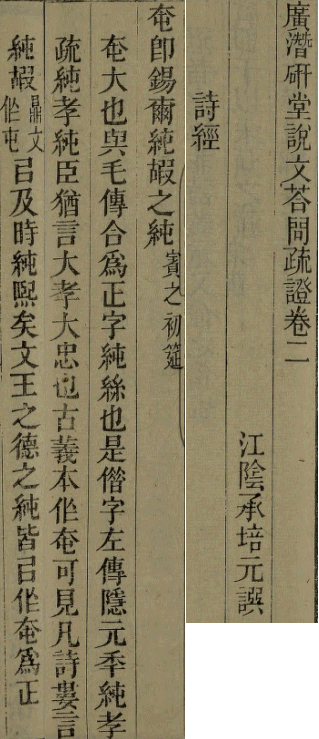 廣潛研堂說文荅問疏證卷二
江陰承培元譔
詩經
奄即錫爾純嘏之純賓之初筵
奄大也與毛傳合爲正字純絲也是偕字左傳隱元秊純孝
疏純孝純臣猶言大孝大忠也古義本作奄可見凡詩婁言
純嘏鼎文作屯㠯及時純熙矣文王之德之純皆㠯作奄爲正